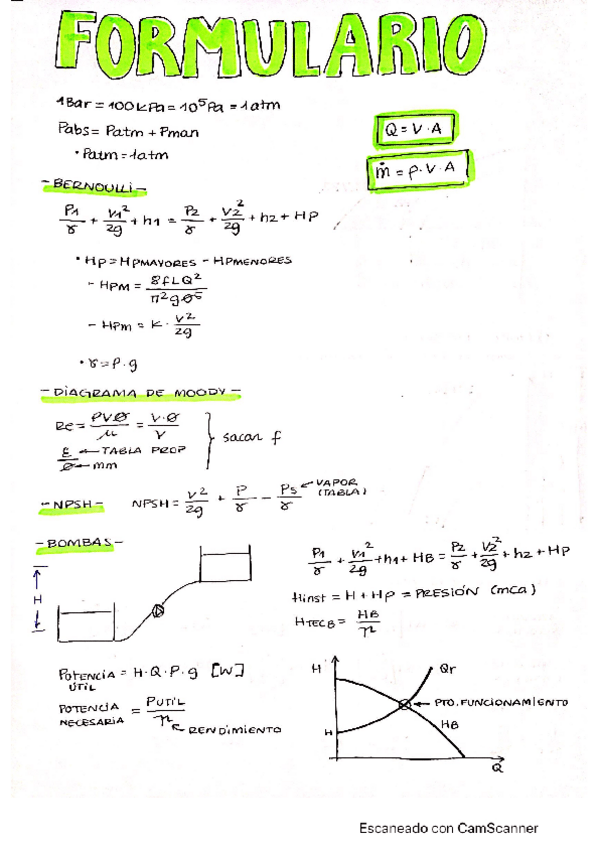 FORMULARIO
1Bar = 100kPa = 10⁵Pa = 1atm
Pabs = Patm + Pman
• Patm = 1atm
Q = V · A
ṁ = ρ · V · A
- BERNOULLI -
P1/γ + V1²/2g + h1 = P2/γ + V2²/2g + h2 + Hp
• Hp = HPMAYORES - HPMENORES
- HPM = 8fLQ²/π²gø⁵
- HPm = K · V²/2g
• γ = ρ · g
- DIAGRAMA DE MOODY -
Re = ρVø/μ = V·ø/ν
ε/ø ← TABLA PROP
← mm
} sacar f
- NPSH -
NPSH = V²/2g + P/γ - Ps/γ ← VAPOR (TABLA)
- BOMBAS -
H
P1/γ + V1²/2g + h1 + HB = P2/γ + V2²/2g + h2 + Hp
Hinst = H + Hp = PRESIÓN (mca)
HTECB = HB/η
POTENCIA ÚTIL = H · Q · ρ · g [W]
POTENCIA NECESARIA = PUTIL/η ← RENDIMIENTO
H
Qr
← PTO. FUNCIONAMIENTO
HB
H
Q
Escaneado con CamScanner